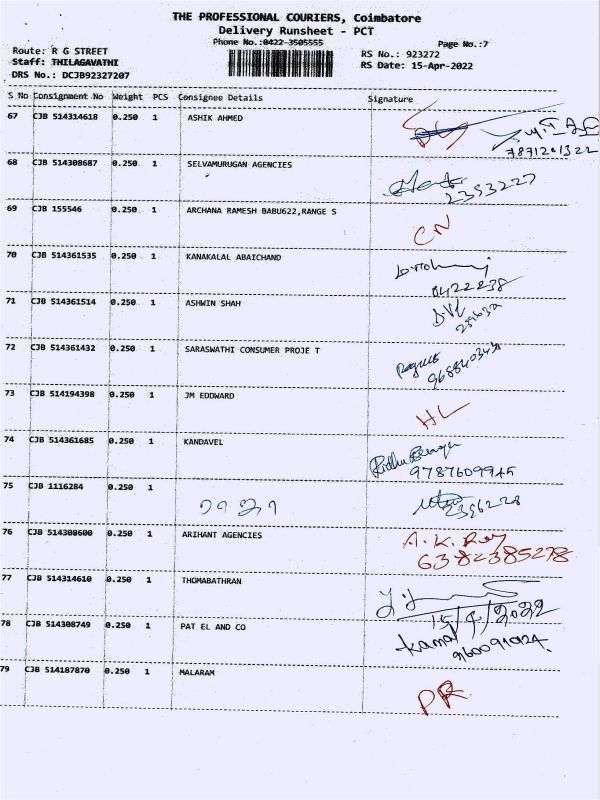 THE PROFESSIONAL COURIERS, Coimbatore
Delivery Runsheet - PCT
Phone No.:0422-3505555 Page No.:7
Route: R G STREET RS No.: 923272
Staff: THILAGAVATHI RS Date: 15-Apr-2022
DRS No.: DCJB92327207
S No Consignment No Weight PCS Consignee Details Signature
67 CJB 514314618 0.250 1 ASHIK AHMED
7871201322
68 CJB 514308687 0.250 1 SELVAMURUGAN AGENCIES
2393227
69 CJB 155546 0.250 1 ARCHANA RAMESH BABU622,RANGE S
CN
70 CJB 514361535 0.250 1 KANAKALAL ABAICHAND
0422238
71 CJB 514361514 0.250 1 ASHWIN SHAH
72 CJB 514361432 0.250 1 SARASWATHI CONSUMER PROJE T
73 CJB 514194398 0.250 1 JM EDDWARD
HL
74 CJB 514361685 0.250 1 KANDAVEL
9787609945
75 CJB 1116284 0.250 1
2396228
76 CJB 514308600 0.250 1 ARIHANT AGENCIES
A.K. Roy
6382385278
77 CJB 514314610 0.250 1 THOMABATHRAN
15/4/2022
78 CJB 514308749 0.250 1 PAT EL AND CO
Kamal
79 CJB 514187870 0.250 1 MALARAM
PR